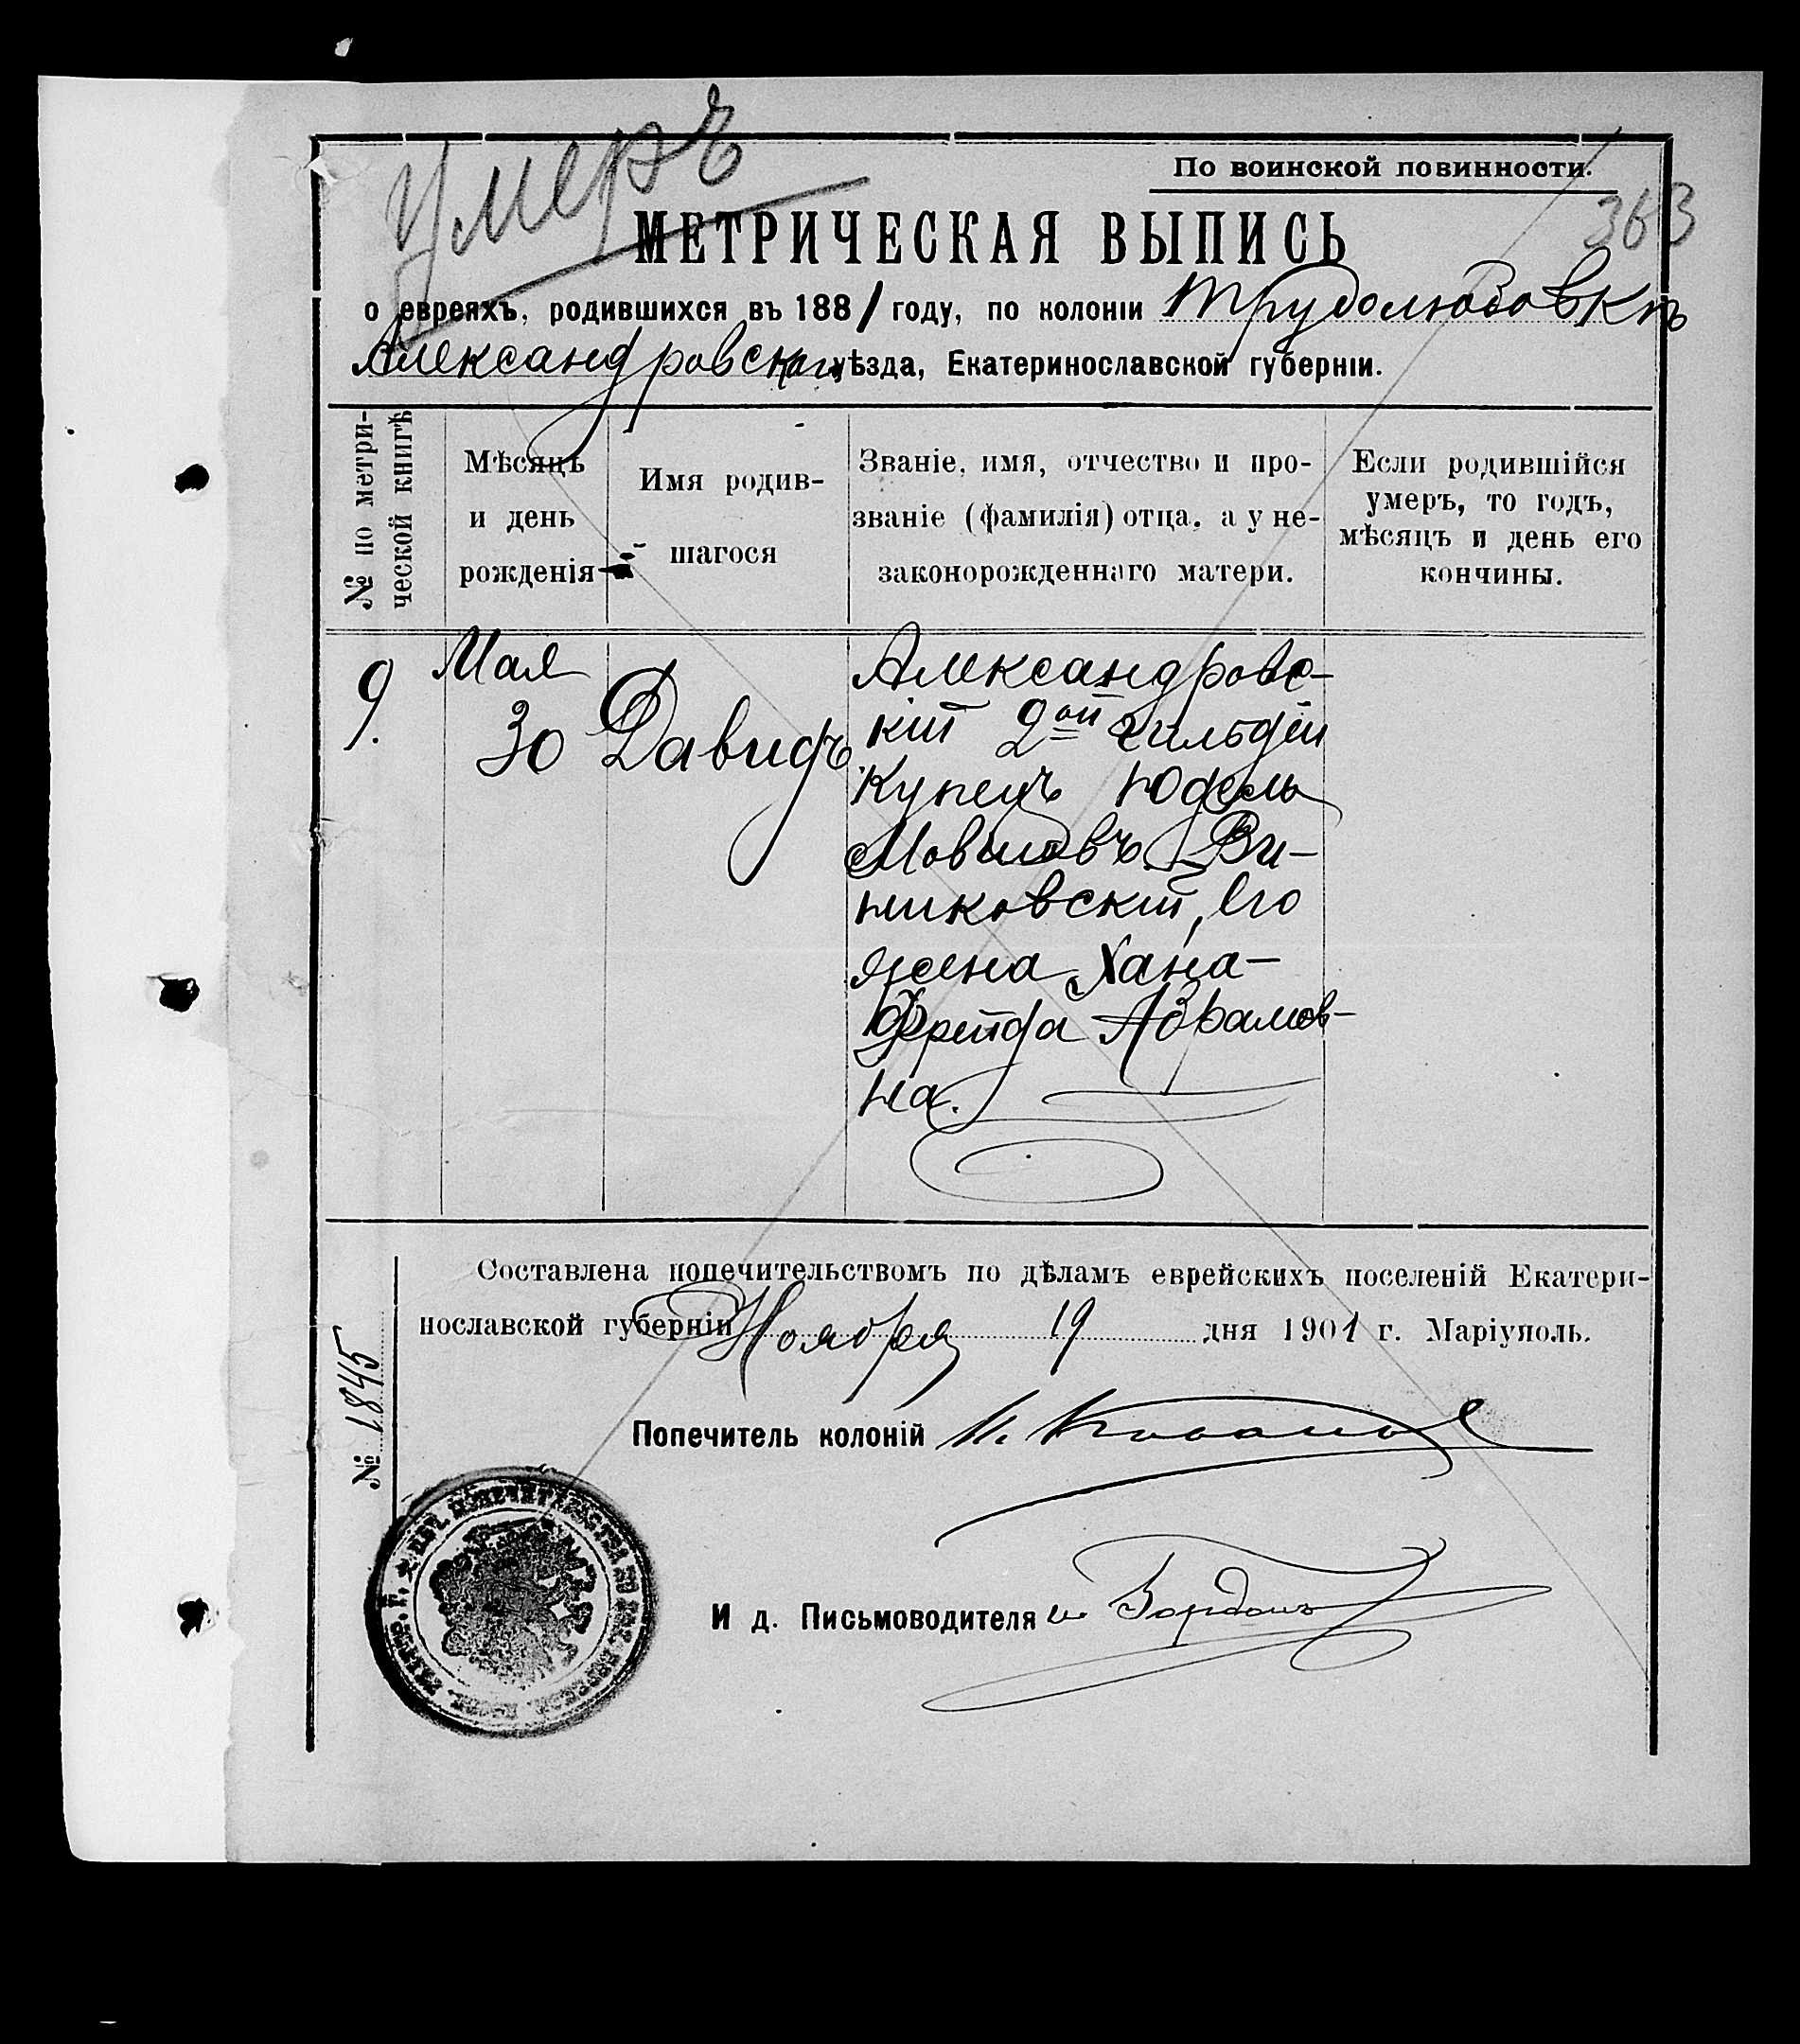 Умеръ
По воинской повинности.
363
МЕТРИЧЕСКАЯ ВЫПИСЬ
о евреяхъ, родившихся въ 1881 году, по колоніи Трудолюбовкѣ
Александровскаго уѣзда, Екатеринославской губерніи.
№ по метри-
ческой книгѣ
Мѣсяцъ
и день
рожденія
Имя родив-
шагося
Званіе, имя, отчество и про-
званіе (фамилія) отца, а у не-
законорожденнаго матери.
Если родившійся
умеръ, то годъ,
мѣсяцъ и день его
кончины.
9.
Мая
30
Давидъ
Александровс-
кій 2ой гильдіи
Купецъ Юдель
Мовшовъ Ви-
никовскій, его
жена Хана-
Фрейда Абрамов-
на.
Составлена попечительствомъ по дѣламъ еврейскихъ поселеній Екатери-
нославской губерніи Ноября 19 дня 1901 г. Маріуполь.
№ 1845
Попечитель колоній
И д. Письмоводителя